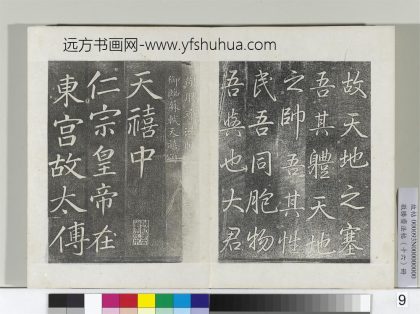 远方书画网-www.yfshuhua.com
故天地之塞
吾其體天地
之帥吾其性
民吾同胞物
吾與也大君
天禧中
仁宗皇帝在
東宮故太傅
9